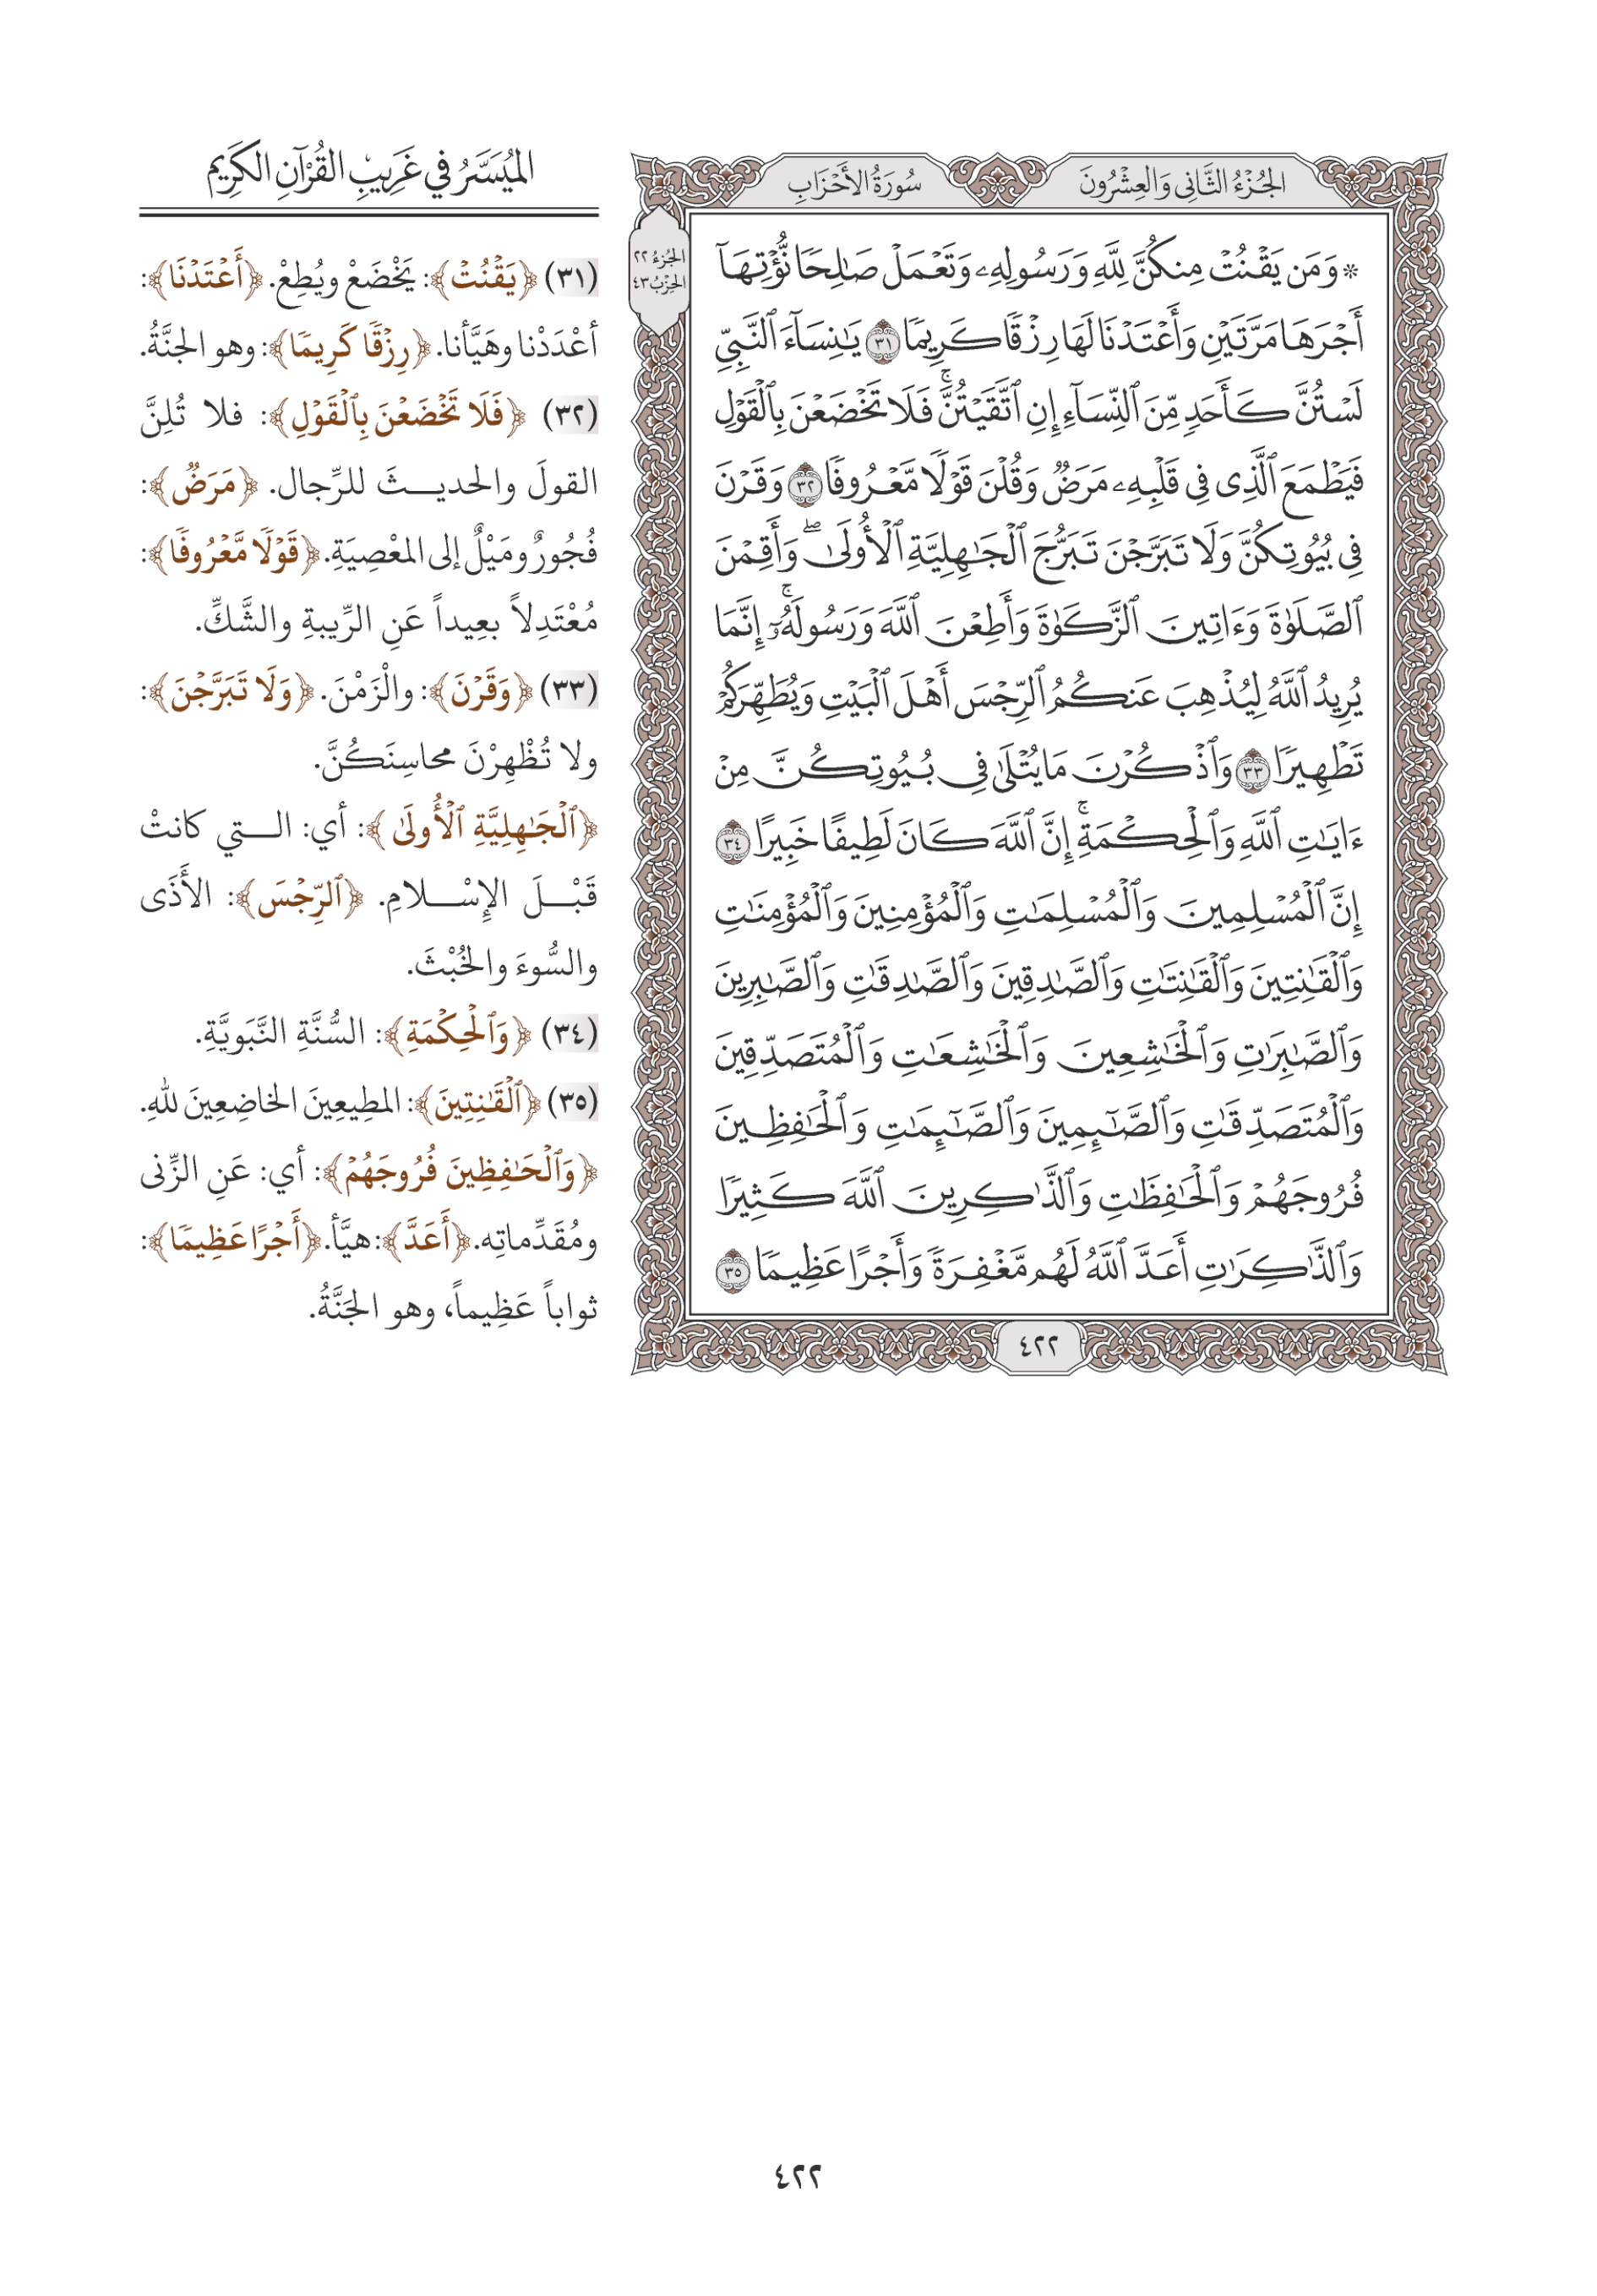 الجُزْءُ الثَّانِي وَالعِشْرُونَ
سُورَةُ الأَحْزَابِ
الجُزءُ ٢٢
الحِزْبُ ٤٣
۞ وَمَن يَقۡنُتۡ مِنكُنَّ لِلَّهِ وَرَسُولِهِۦ وَتَعۡمَلۡ صَٰلِحٗا نُّؤۡتِهَآ
أَجۡرَهَا مَرَّتَيۡنِ وَأَعۡتَدۡنَا لَهَا رِزۡقٗا كَرِيمٗا ٣١ يَٰنِسَآءَ ٱلنَّبِيِّ
لَسۡتُنَّ كَأَحَدٖ مِّنَ ٱلنِّسَآءِ إِنِ ٱتَّقَيۡتُنَّۚ فَلَا تَخۡضَعۡنَ بِٱلۡقَوۡلِ
فَيَطۡمَعَ ٱلَّذِي فِي قَلۡبِهِۦ مَرَضٞ وَقُلۡنَ قَوۡلٗا مَّعۡرُوفٗا ٣٢ وَقَرۡنَ
فِي بُيُوتِكُنَّ وَلَا تَبَرَّجۡنَ تَبَرُّجَ ٱلۡجَٰهِلِيَّةِ ٱلۡأُولَىٰۖ وَأَقِمۡنَ
ٱلصَّلَوٰةَ وَءَاتِينَ ٱلزَّكَوٰةَ وَأَطِعۡنَ ٱللَّهَ وَرَسُولَهُۥٓۚ إِنَّمَا
يُرِيدُ ٱللَّهُ لِيُذۡهِبَ عَنكُمُ ٱلرِّجۡسَ أَهۡلَ ٱلۡبَيۡتِ وَيُطَهِّرَكُمۡ
تَطۡهِيرٗا ٣٣ وَٱذۡكُرۡنَ مَا يُتۡلَىٰ فِي بُيُوتِكُنَّ مِنۡ
ءَايَٰتِ ٱللَّهِ وَٱلۡحِكۡمَةِۚ إِنَّ ٱللَّهَ كَانَ لَطِيفًا خَبِيرًا ٣٤
إِنَّ ٱلۡمُسۡلِمِينَ وَٱلۡمُسۡلِمَٰتِ وَٱلۡمُؤۡمِنِينَ وَٱلۡمُؤۡمِنَٰتِ
وَٱلۡقَٰنِتِينَ وَٱلۡقَٰنِتَٰتِ وَٱلصَّٰدِقِينَ وَٱلصَّٰدِقَٰتِ وَٱلصَّٰبِرِينَ
وَٱلصَّٰبِرَٰتِ وَٱلۡخَٰشِعِينَ وَٱلۡخَٰشِعَٰتِ وَٱلۡمُتَصَدِّقِينَ
وَٱلۡمُتَصَدِّقَٰتِ وَٱلصَّٰٓئِمِينَ وَٱلصَّٰٓئِمَٰتِ وَٱلۡحَٰفِظِينَ
فُرُوجَهُمۡ وَٱلۡحَٰفِظَٰتِ وَٱلذَّٰكِرِينَ ٱللَّهَ كَثِيرٗا
وَٱلذَّٰكِرَٰتِ أَعَدَّ ٱللَّهُ لَهُم مَّغۡفِرَةٗ وَأَجۡرًا عَظِيمٗا ٣٥
٤٢٢
المُيَسَّرُ في غَرِيبِ القُرْآنِ الكَرِيمِ
(٣١) ﴿يَقۡنُتۡ﴾: يَخْضَعْ ويُطِعْ. ﴿أَعۡتَدۡنَا﴾:
أعْدَدْنا وهَيَّأنا. ﴿رِزۡقٗا كَرِيمٗا﴾: وهو الجنَّةُ.
(٣٢) ﴿فَلَا تَخۡضَعۡنَ بِٱلۡقَوۡلِ﴾: فلا تُلِنَّ
القولَ والحديثَ للرِّجال. ﴿مَرَضٞ﴾:
فُجُورٌ ومَيْلٌ إلى المعْصِيَةِ. ﴿قَوۡلٗا مَّعۡرُوفٗا﴾:
مُعْتَدِلاً بعِيداً عَنِ الرِّيبةِ والشَّكِّ.
(٣٣) ﴿وَقَرۡنَ﴾: والْزَمْنَ. ﴿وَلَا تَبَرَّجۡنَ﴾:
ولا تُظْهِرْنَ محاسِنَكُنَّ.
﴿ٱلۡجَٰهِلِيَّةِ ٱلۡأُولَىٰ﴾: أي: التي كانتْ
قَبْلَ الإسْلامِ. ﴿ٱلرِّجۡسَ﴾: الأَذَى
والسُّوءَ والخُبْثَ.
(٣٤) ﴿وَٱلۡحِكۡمَةِ﴾: السُّنَّةِ النَّبَويَّةِ.
(٣٥) ﴿ٱلۡقَٰنِتِينَ﴾: المطِيعِينَ الخاضِعِينَ للهِ.
﴿وَٱلۡحَٰفِظِينَ فُرُوجَهُمۡ﴾: أي: عَنِ الزِّنى
ومُقَدِّماتِه. ﴿أَعَدَّ﴾: هيَّأ. ﴿أَجۡرًا عَظِيمٗا﴾:
ثواباً عَظِيماً، وهو الجَنَّةُ.
٤٢٢